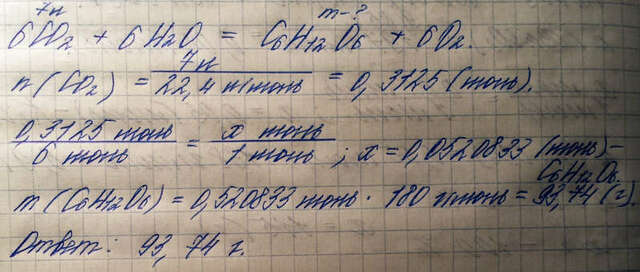 7л m-?
6CO2 + 6H2O = C6H12O6 + 6O2.
n(CO2) = 7л / 22,4 л/моль = 0,3125 (моль).
0,3125 моль / 6 моль = x моль / 1 моль ; x = 0,0520833 (моль) - C6H12O6.
m(C6H12O6) = 0,520833 моль · 180 г/моль = 93,74 (г).
Ответ: 93,74 г.